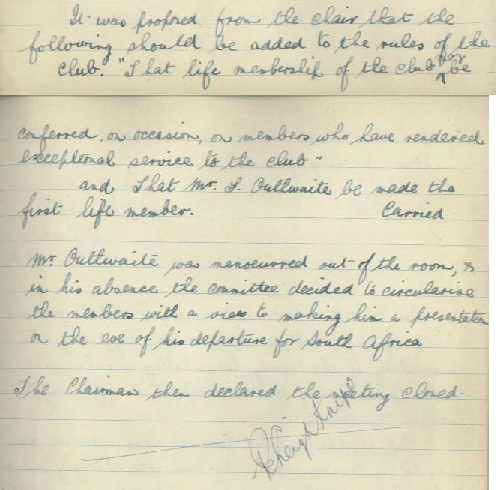 It was proposed from the chair that the
following should be added to the rules of the
club. "That life membership of the club may be
conferred, on occasion, on members who have rendered
exceptional service to the club"
and That Mr. F. Outhwaite be made the
first life member. Carried
Mr Outhwaite was manoeurred out of the room, &
in his absence the committee decided to circularise
the members with a view to making him a presentation
on the eve of his departure for South Africa
The Chairman then declared the meeting closed.